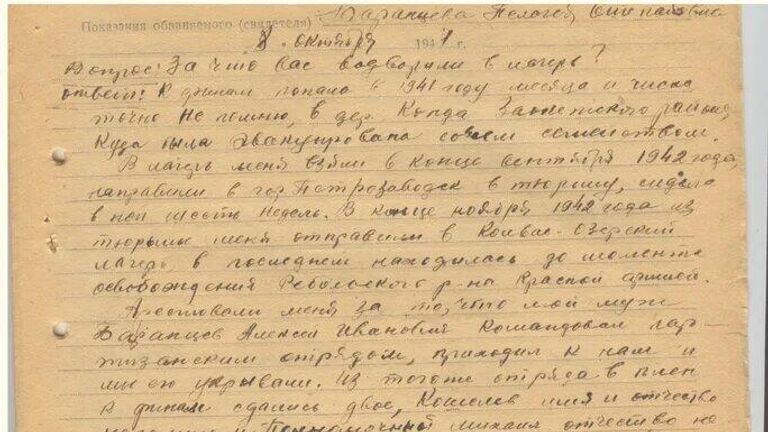 Показания обвиняемого (свидетеля) Баранцева Пелагея Степановна
8. октября 194 г.
Вопрос: За что вас водворили в лагерь?
Ответ: К финам попала в 1941 году месяца и числа
точно не помню, в дер. Конда Заонежского района,
куда была эвакуирована со всем семейством.
В лагерь меня взяли в конце сентября 1942 года,
направили в гор Петрозаводск в тюрьму, сидела
в ней шесть недель. В конце ноября 1942 года из
тюрьмы меня отправили в Колвас-Озерский
лагерь в последнем находилась до момента
освобождения Ребольского р-на Красной армией.
Арестовали меня за то, что мой муж
Баранцев Алексей Иванович командовал пар-
тизанским отрядом, приходил к нам и
мы его укрывали. Из того же отряда в плен
к финам сдались двое, Кошелев имя и отчество
Михаил отчество не